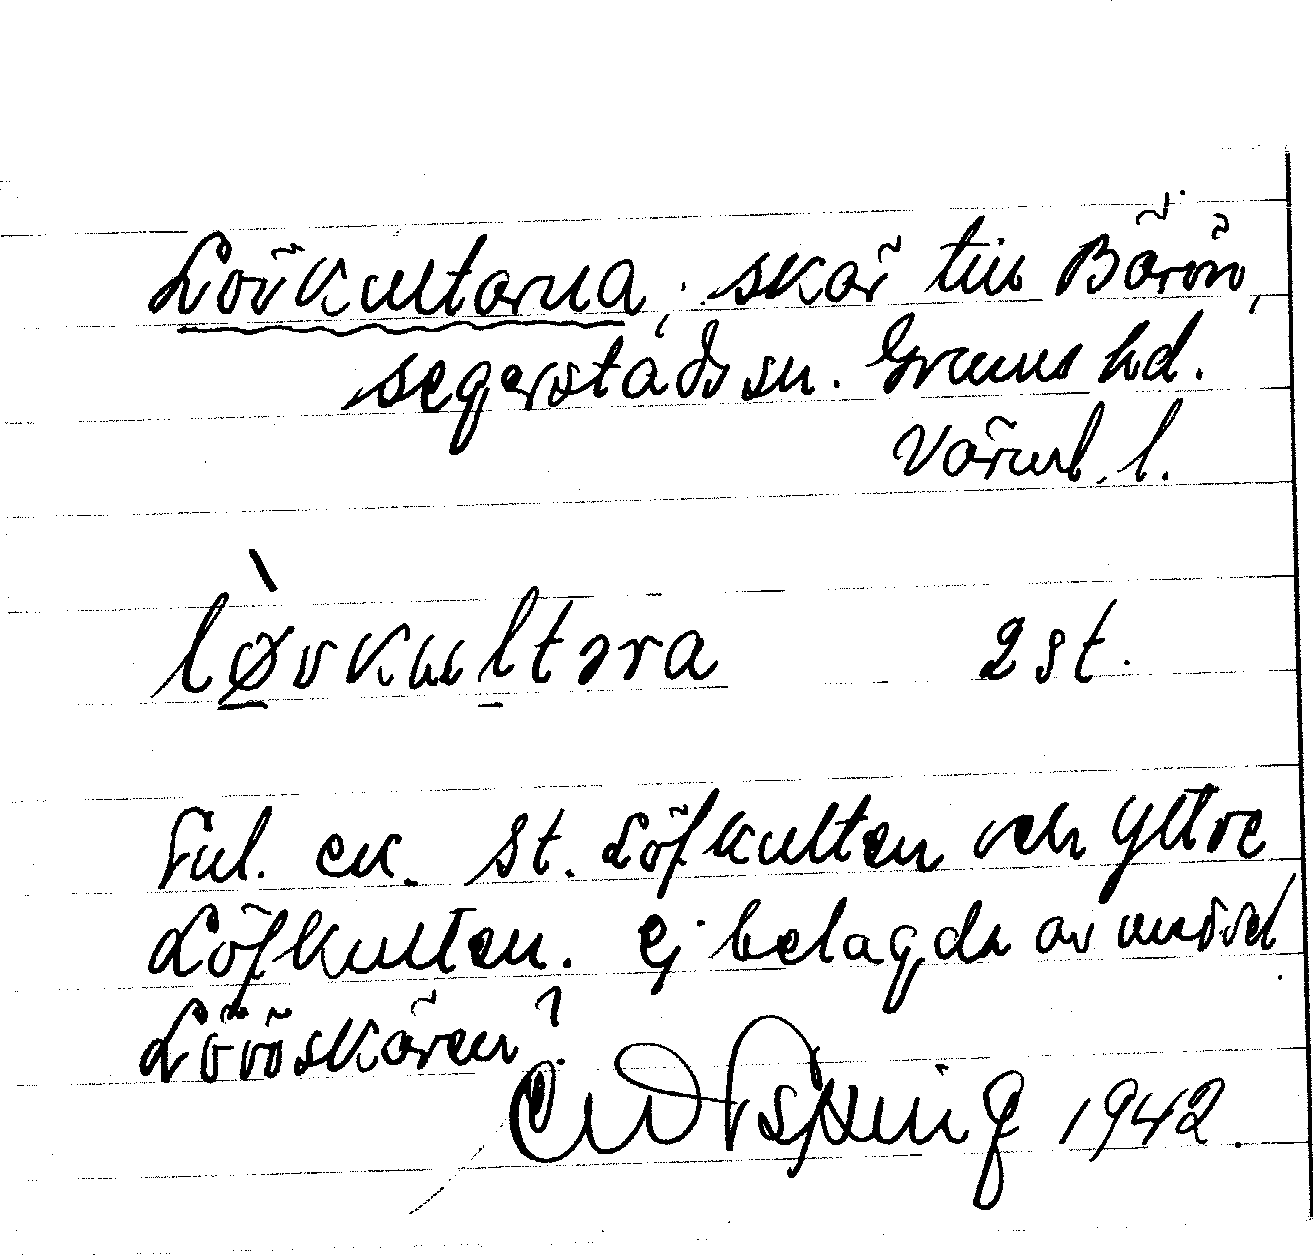 Lövkultarna, skär till Bärön,
Segerstads sn. Grums hd.
Värml. l.
lø̀vkultɔra 2 st.
Enl. ek. St. Löfkulten och Yttre
Löfkulten. Ej belagda av
Lövöskären?
1942.